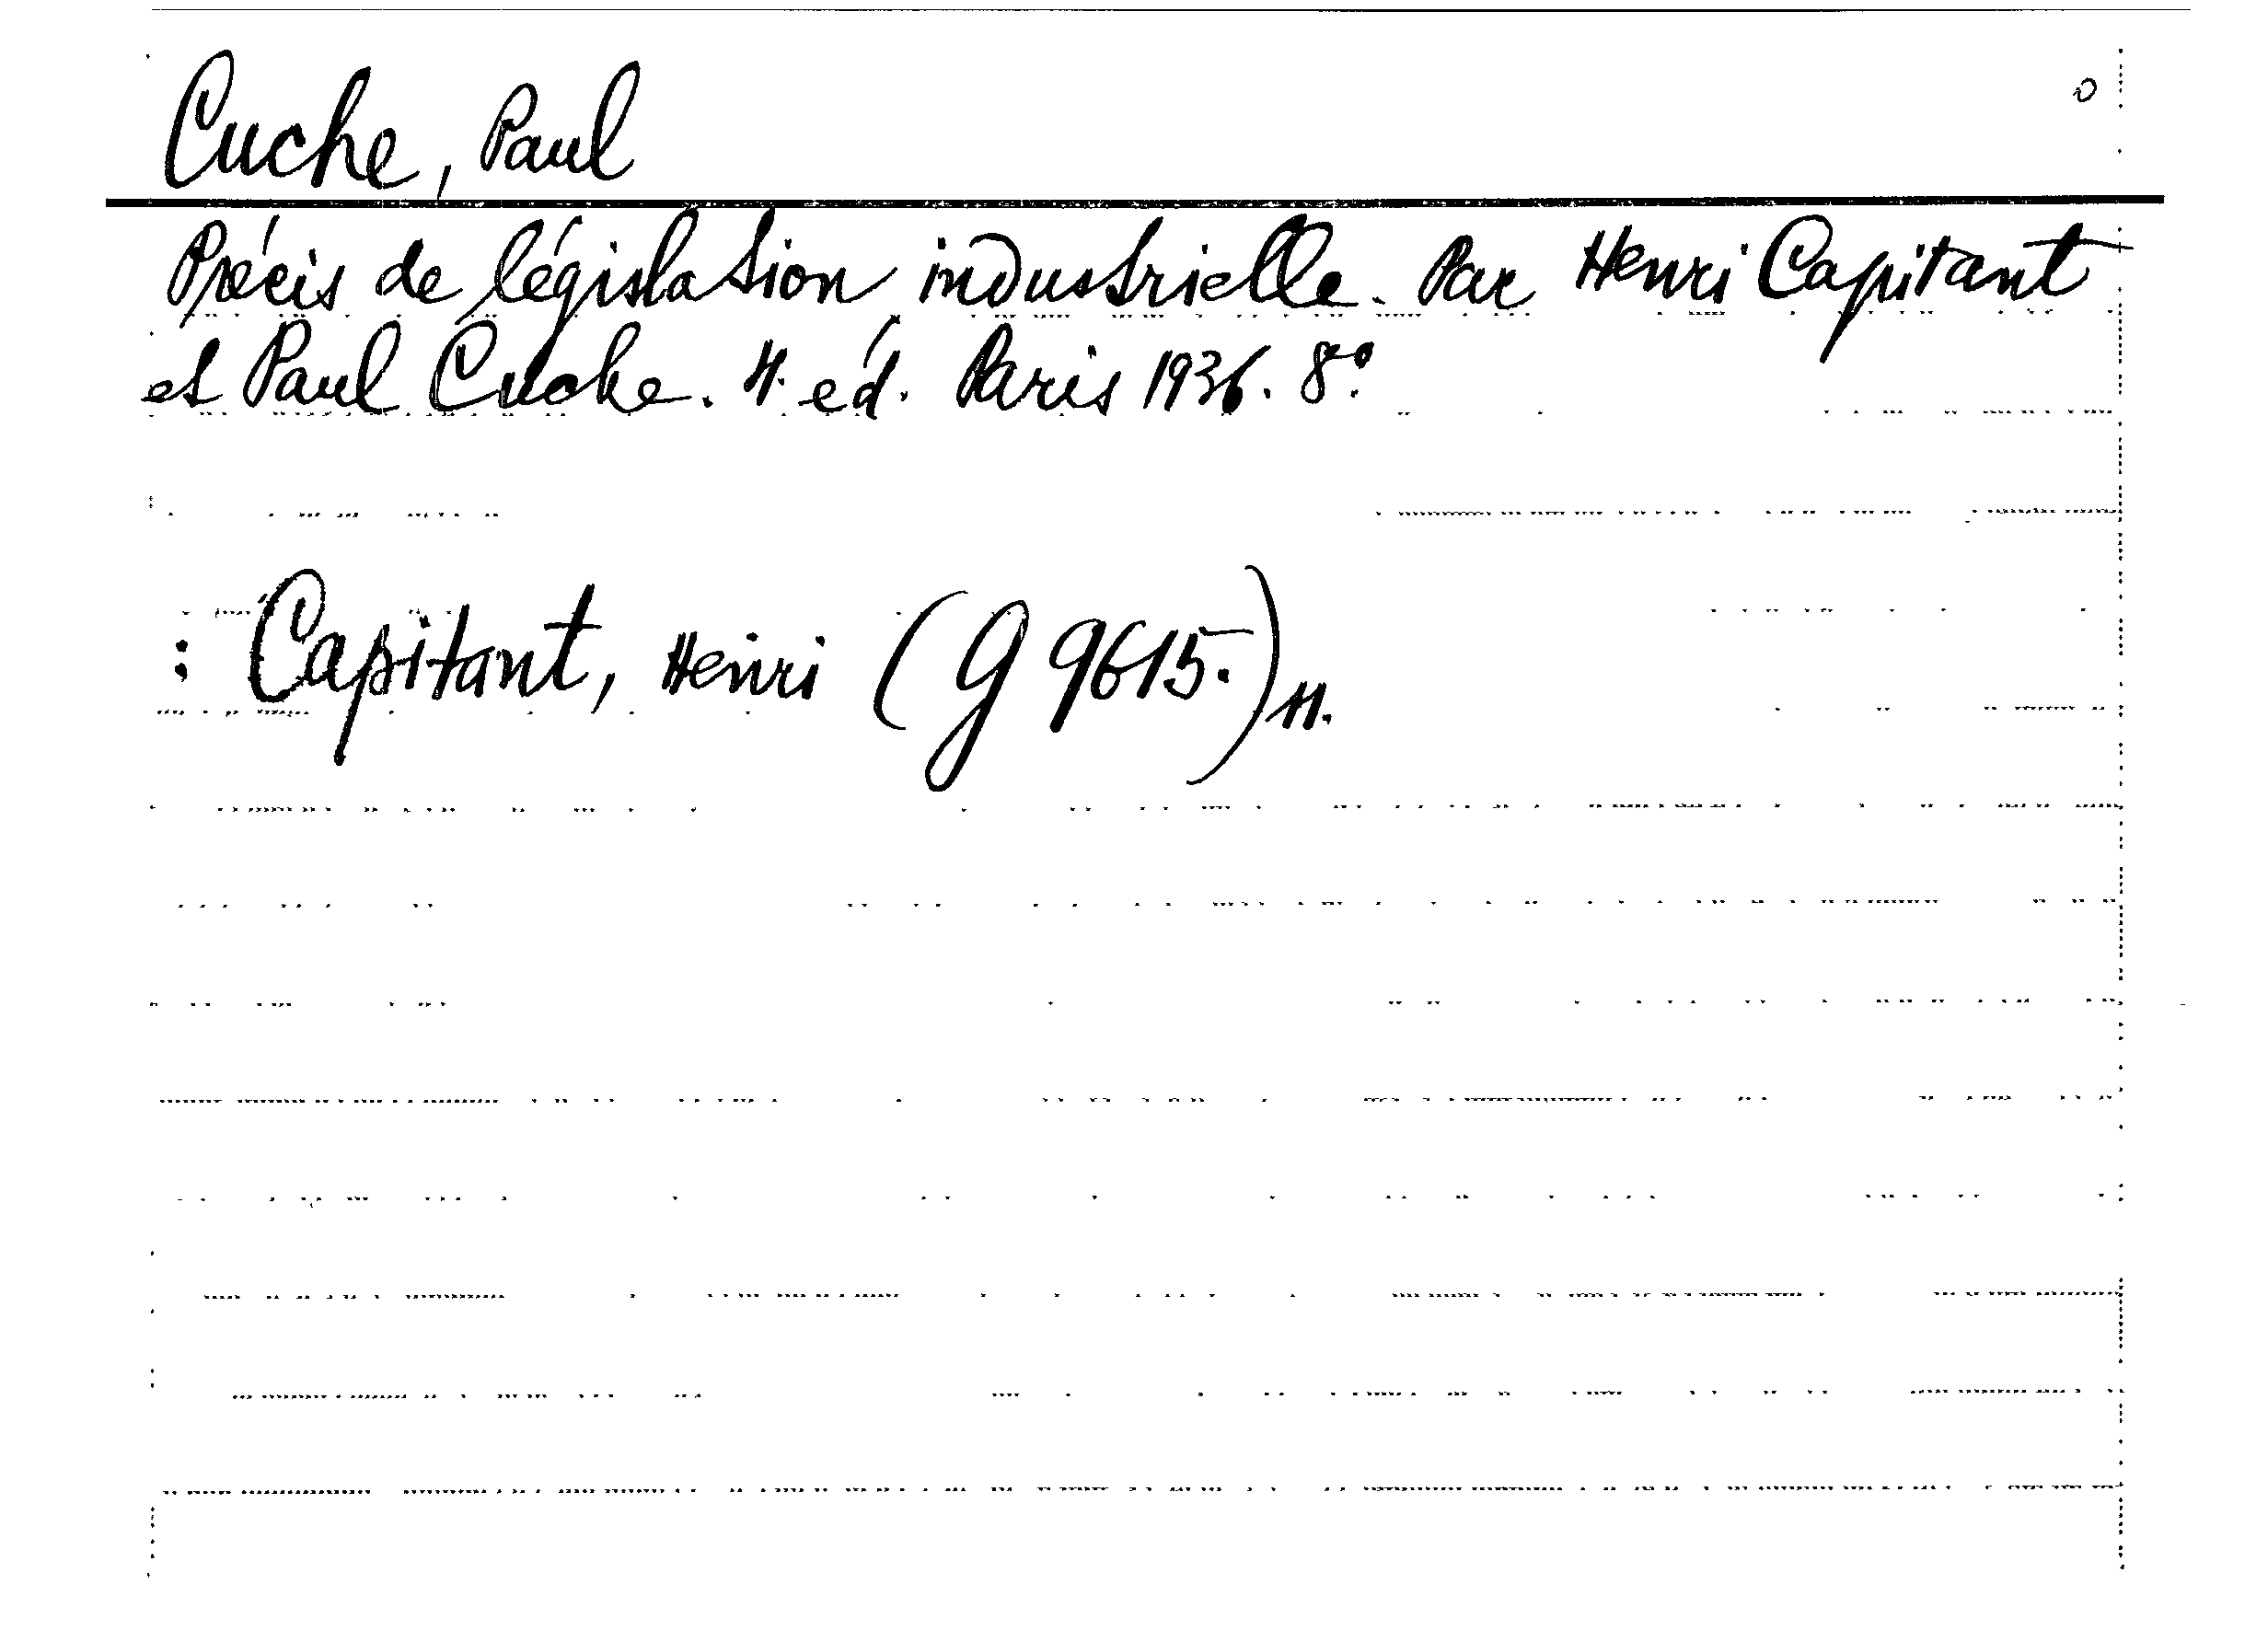 Cuche, Paul
Précis de législation industrielle. Par Henri Capitant
et Paul Cuche. 4. éd. Paris 1936. 8º.
: Capitant, Henri (G 9615.)